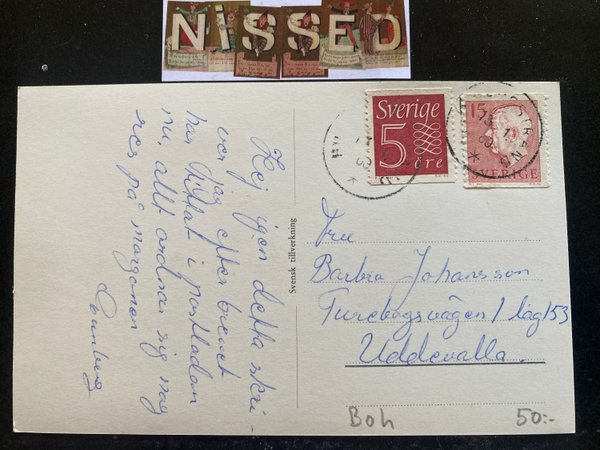 NiSSED
Hej igen detta skri-
ver jag efter brevet
har tittat i postlådan
nu, allt ordnar sig nog
ses på margonen
Sverige
5
öre
15
SVERIGE
Svensk tillverkning
Fru
Barbro Johansson
Turebogsvägen 1 läg 153
Uddevalla.
Boh
50:-